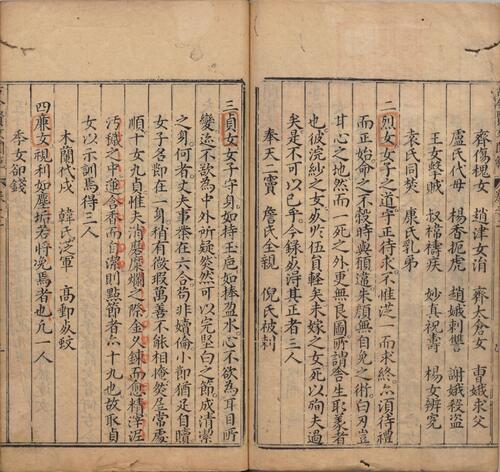 齊傷槐女　趙津女涓　齊太倉女　曹娥求父
盧氏代母　楊香扼虎　趙娥刺讐　謝娥殺盜
王女擊賊　叔褘禱疾　妙真祝壽　楊女辨冤
袁氏同焚　康氏乳弟
二烈女女子之道守正待求不惟從一而求終亦須待禮
而正始命之不穀時與願違朱顏無自免之術白刃豈
甘心之地然而一死之外更無良圖所謂舍生取義者
也彼浣紗之女成伍員輕矣未嫁之女死以殉夫過
矣是不可以已乎今錄必得其正者三人
奉天二竇　詹氏全親　倪氏被刺
三貞女女子守身如持玉巵如捧盈水心不欲為耳目所
變迹不欲為中外所疑然然可以完堅白之節成清潔
之身何者丈夫事業在六合苟非嬻倫小節猶足自贖
女子名節在一身稍有微瑕萬善不能相掩然居常處
順十女九貞惟夫消磨糜爛之際金久鍊而愈精滓泥
汚穢之中蓮含香而自潔則點節者亦十九也故取貞
女以示訓焉得三人
木蘭代戍　韓氏從軍　高郵死蚊
四廉女視利如塵垢若將凂焉者也凡一人
季女卻錢